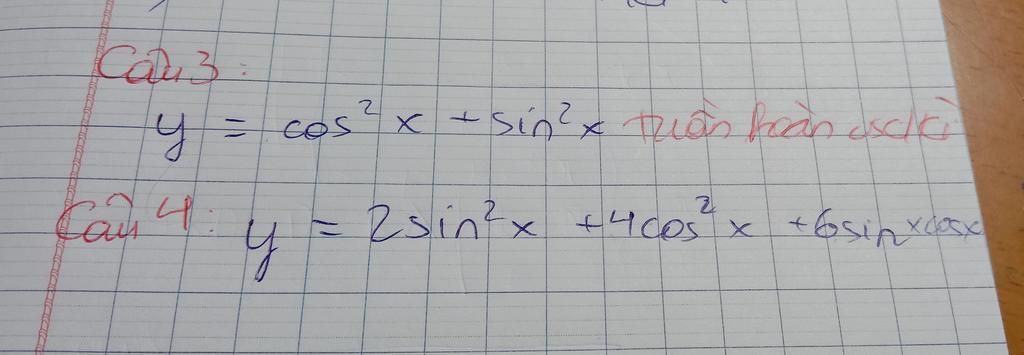 Câu 3 :
y = cos²x + sin²x tuần hoàn
Câu 4 : y = 2sin²x + 4cos²x + 6sinxcosx